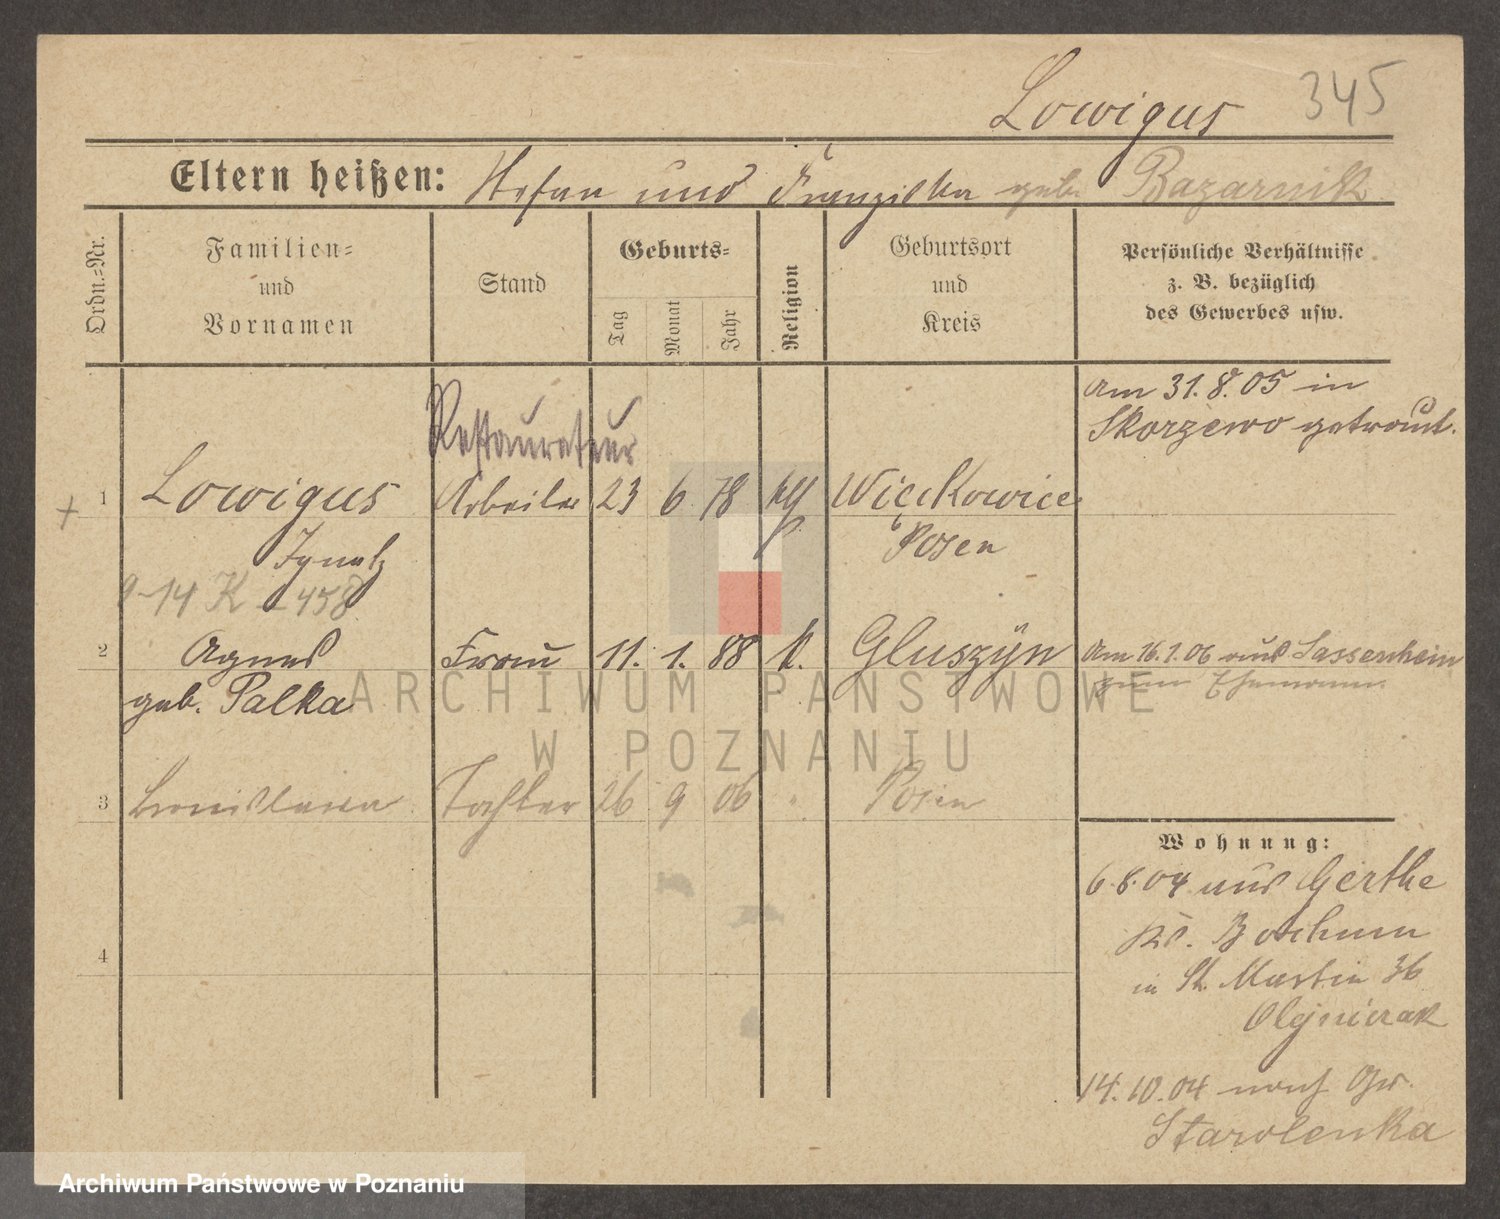 Lowigus 345
Eltern heißen: Stefan und Franziska geb. Bazarnik
Ordn.=Nr.
Familien=
und
Vornamen
Stand
Geburts=
Tag
Monat
Jahr
Religion
Geburtsort
und
Kreis
Persönliche Verhältnisse
z. B. bezüglich
des Gewerbes usw.
am 31.8.05 in
Skorzewo getraut.
Restaurateur
1 Lowigus Arbeiter 23 6 78 Więckowice
Ignatz Posen
9-14 K - 458
2 Agnes Frau 11. 1. 88 k. Gluszyn am 16.1.06 aus Sassenheim
geb. Palka zum Ehemann
3 Bronislawa Tochter 26 9 06 " Posen
4
Wohnung:
6.8.04 aus Gerthe
Kr. Bochum
in St. Martin 36
Olejniczak
14.10.04 nach Gr.
Starolenka
ARCHIWUM PAŃSTWOWE
W POZNANIU
Archiwum Państwowe w Poznaniu